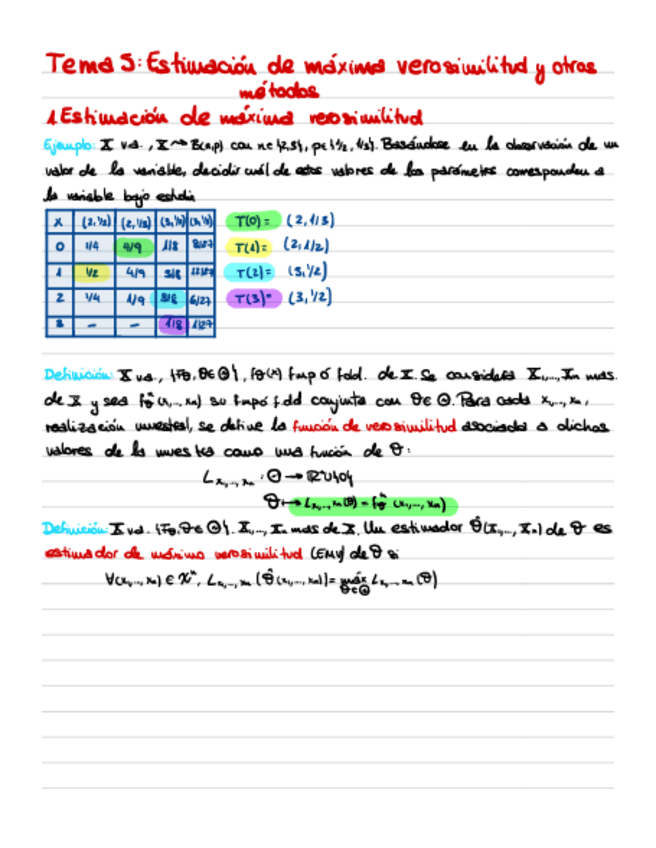 Tema 5: Estimación de máxima verosimilitud y otros
métodos
1. Estimación de máxima verosimilitud
Ejemplo: X v.a., X⇝B(n,p) con n∈{2,3}, p∈{1/2, 1/3}. Basándose en la observación de un
valor de la variable, decidir cuál de estos valores de los parámetros corresponden a
la variable bajo estudio
X (2,1/2) (2,1/3) (3,1/2) (3,1/3) T(0) = (2,1/3)
0 1/4 4/9 1/8 8/27 T(1) = (2,1/2)
1 1/2 4/9 3/8 12/27 T(2) = (3,1/2)
2 1/4 1/9 3/8 6/27 T(3) = (3,1/2)
3 - - 1/8 1/27
Definición: X v.a., {Fθ, θ∈Θ}, fθ(x) fmp ó fdd. de X. Se considera X₁,...,Xn mas.
de X y sea fθⁿ(x₁,...,xn) su fmp ó fdd conjunta con θ∈Θ. Para cada x₁,...,xn,
realización muestral, se define la función de verosimilitud asociada a dichos
valores de la muestra como una función de θ:
Lx₁,...,xn : Θ → ℝ⁺∪{0}
θ ↦ Lx₁,...,xn(θ) = fθⁿ(x₁,...,xn)
Definición: X v.a. {Fθ, θ∈Θ}. X₁,...,Xn mas de X. Un estimador θ̂(X₁,...,Xn) de θ es
estimador de máxima verosimilitud (EMV) de θ si
∀(x₁,...,xn) ∈ χⁿ, Lx₁,...,xn (θ̂(x₁,...,xn)) = máx θ∈Θ Lx₁,...,xn(θ)